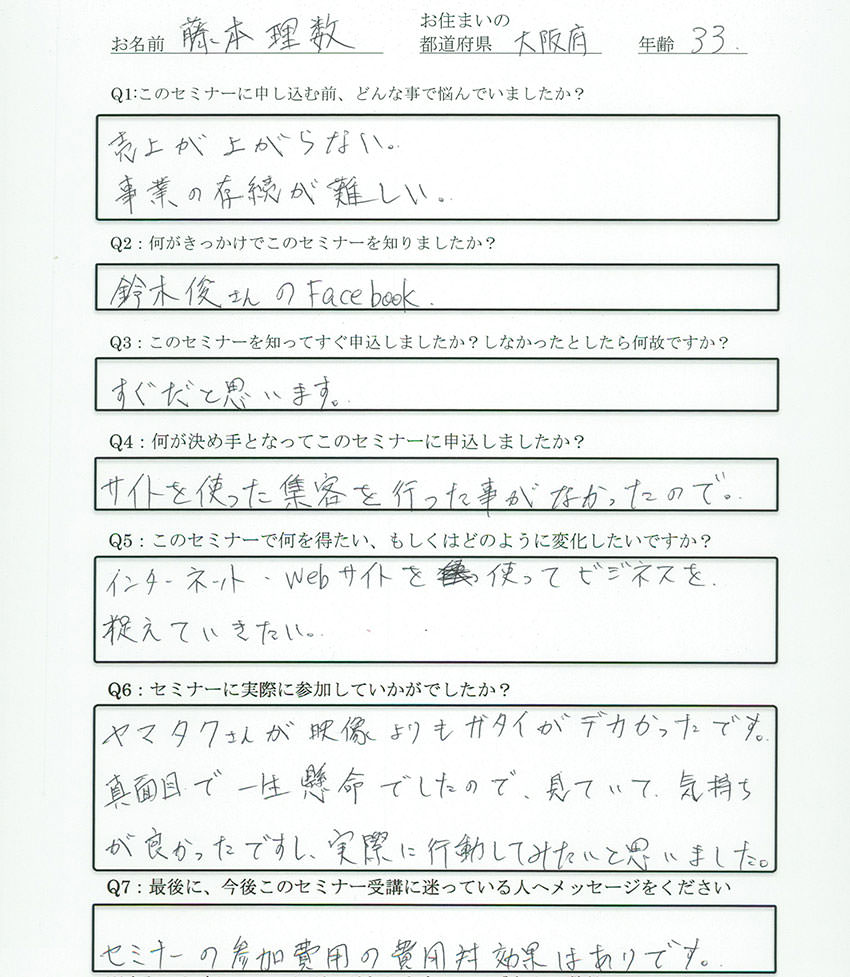 お名前 藤本理数 お住まいの都道府県 大阪府 年齢 33.
Q1:このセミナーに申し込む前、どんな事で悩んでいましたか？
売上が上がらない。
事業の存続が難しい。
Q2：何がきっかけでこのセミナーを知りましたか？
鈴木俊さんのFacebook.
Q3：このセミナーを知ってすぐ申込しましたか？しなかったとしたら何故ですか？
すぐだと思います。
Q4：何が決め手となってこのセミナーに申込しましたか？
サイトを使った集客を行った事がなかったので。
Q5：このセミナーで何を得たい、もしくはどのように変化したいですか？
インターネット・webサイトを使ってビジネスを
捉えていきたい。
Q6：セミナーに実際に参加していかがでしたか？
ヤマタクさんが映像よりもガタイがデカかったです。
真面目で一生懸命でしたので、見ていて気持ち
が良かったですし、実際に行動してみたいと思いました。
Q7：最後に、今後このセミナー受講に迷っている人へメッセージをください
セミナーの参加費用の費用対効果はありです。